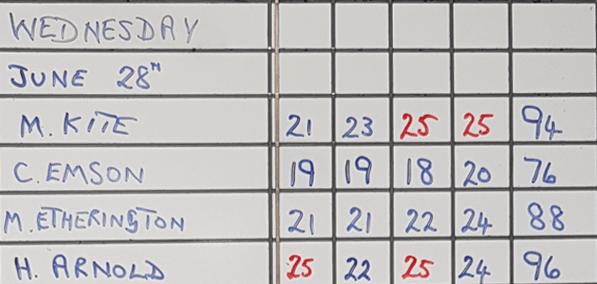 WEDNESDAY
JUNE 28TH
M. KITE 21 23 25 25 94
C. EMSON 19 19 18 20 76
M. ETHERINGTON 21 21 22 24 88
H. ARNOLD 25 22 25 24 96